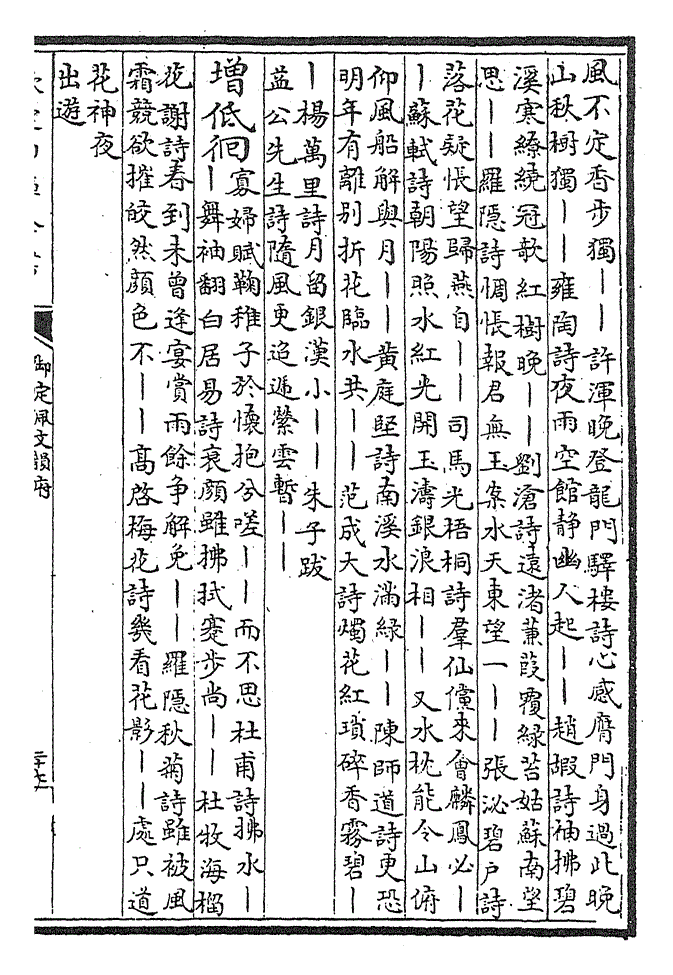 風不定香步獨｜｜許渾晚登龍門驛樓詩心感膺門身過此晚
山秋樹獨｜｜雍陶詩夜雨空館静幽人起｜｜趙嘏詩袖拂碧
溪寒繚繞冠欹紅樹晚｜｜劉滄詩遠渚蒹葭覆緑苔姑蘇南望
思｜｜羅隱詩惆悵報君無玉案水天東望一｜｜張泌碧户詩
落花疑悵望歸燕自｜｜司馬光梧桐詩羣仙儻來會麟鳳必｜
｜蘇軾詩朝陽照水紅光開玉濤銀浪相｜｜又水枕能令山俯
仰風船解與月｜｜黄庭堅詩南溪水滿緑｜｜陳師道詩更恐
明年有離别折花臨水共｜｜范成大詩燭花紅瑣碎香霧碧｜
｜楊萬里詩月留銀漢小｜｜朱子跋
益公先生詩隨風更追遞縈雲暫｜｜
增低徊
寡婦賦鞠稚子於懷抱兮嗟｜｜而不思杜甫詩拂水｜
｜舞袖翻白居易詩衰顔雖拂拭蹇步尚｜｜杜牧海榴
花謝詩春到未曾逢宴賞雨餘争解免｜｜羅隱秋菊詩雖被風
霜競欲摧皎然顔色不｜｜高啓梅花詩幾看花影｜｜處只道
花神夜
出遊
御定佩文韻府